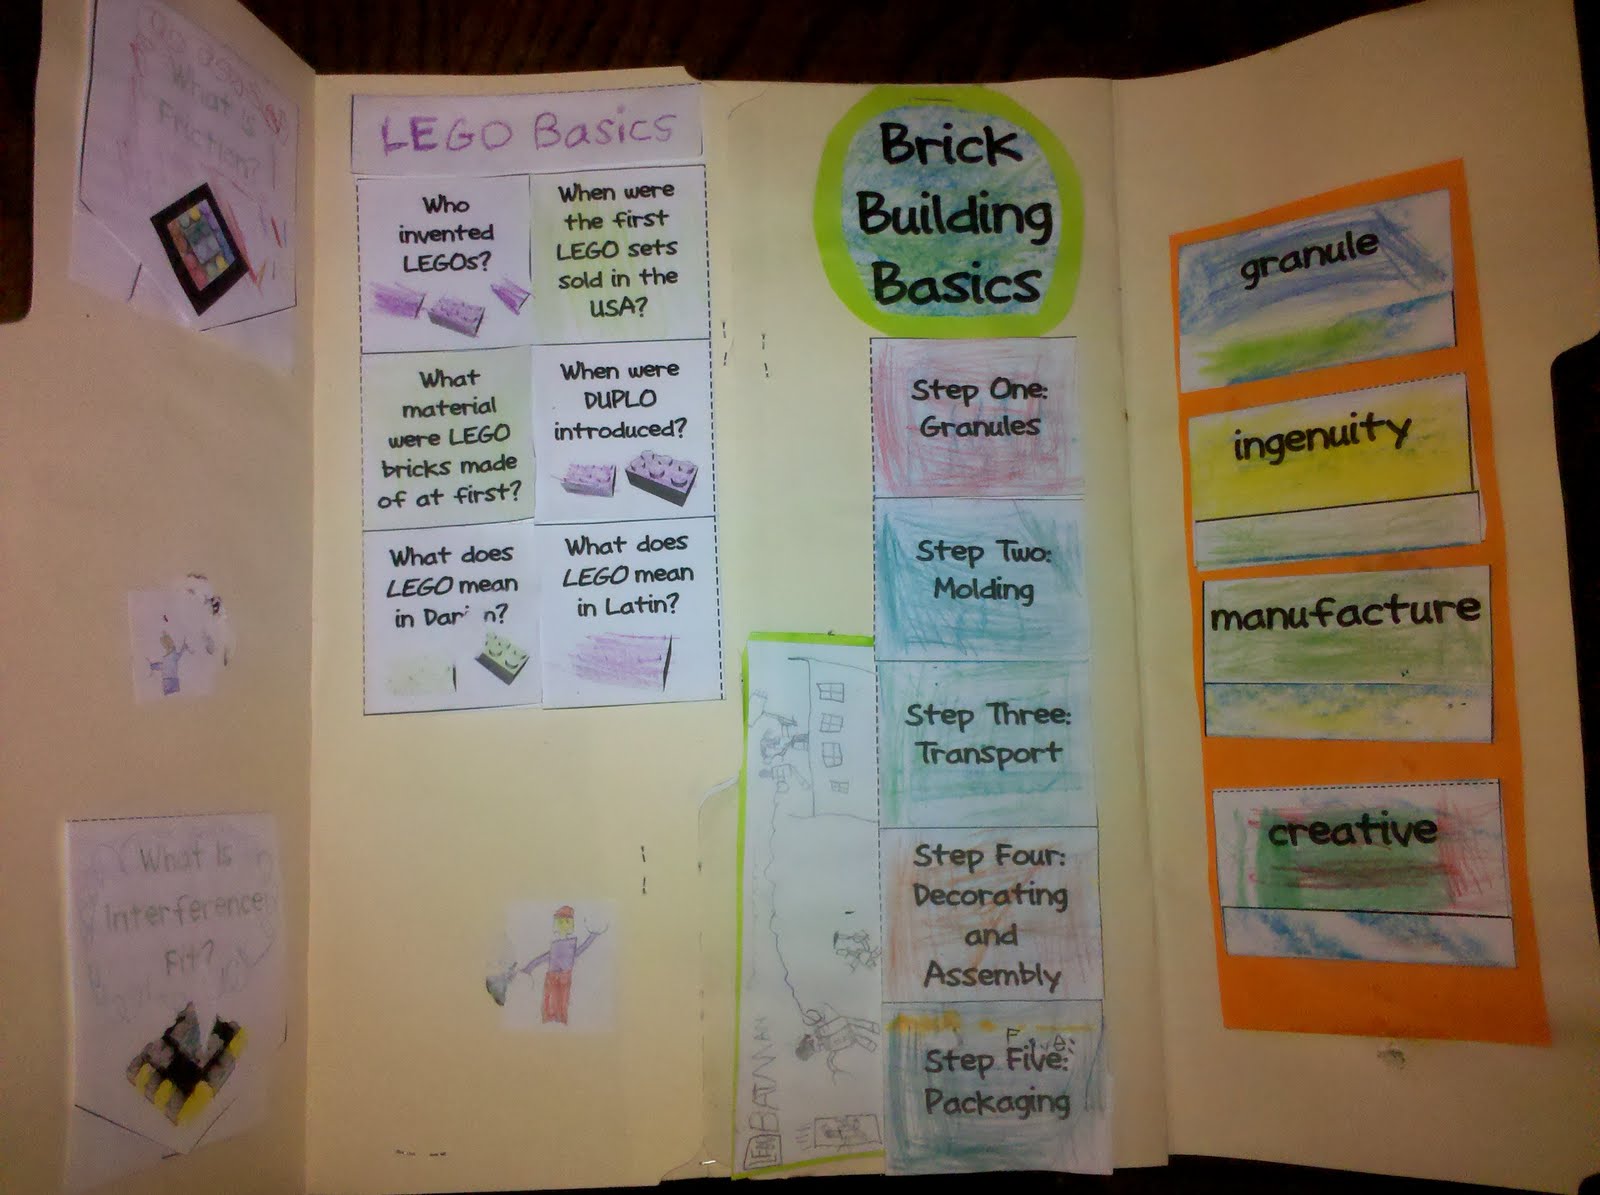 What is
Friction?
What Is
Interference
Fit?
LEGO Basics
Who
invented
LEGOs?
When were
the first
LEGO sets
sold in the
USA?
What
material
were LEGO
bricks made
of at first?
When were
DUPLO
introduced?
What does
LEGO mean
in Dar n?
What does
LEGO mean
in Latin?
Brick
Building
Basics
Step One:
Granules
Step Two:
Molding
Step Three:
Transport
Step Four:
Decorating
and
Assembly
Five:
Step Five:
Packaging
BATMAN
granule
ingenuity
manufacture
creative